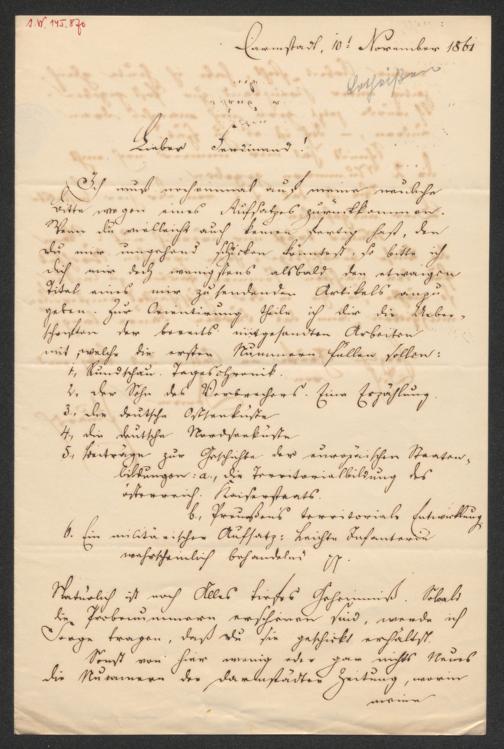 I.N. 145.870
Darmstadt, 10t November 1861
Lotheißen
Lieber Ferdinand!
Ich muß nochmal auf meine neuliche
Bitte wegen eines Aufsatzes zurückkommen.
Wenn du vielleicht auch keinen fertig hast, den
du mir umgehend schicken könntest, so bitte ich
dich mir doch wenigstens alsbald den etwaigen
Titel eines mir zusendenden Artikels anzu
geben. Zur Orientirung theile ich dir die Ueber-
schriften der bereits eingesandten Arbeiten
mit, welche die ersten Nummern füllen sollen:
1, Rundschau. Tageschronik.
2, Der Sohn des Verbrechers. Eine Erzählung.
3, die deutsche Ostseeküste
4, die deutsche Nordseeküste
5, Beiträge zur Geschichte der europäischen Staaten-
bildungen: a, die Territorialbildung des
österreich. Kaiserstaats.
b, Preußens territoriale Entwicklung
6. Ein militärischer Aufsatz: Leichte Infanterie
wahrscheinlich behandelnd pp.
Natürlich ist noch Alles tiefes Geheimniß. Sobald
die Probenummern erschienen sind, werde ich
Sorge tragen, daß du sie geschickt erhältst.
Sonst von hier wenig oder gar nichts Neues
die Nummern der Darmstädter Zeitung, worin
meine